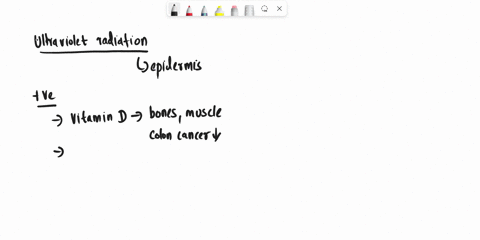 Ultraviolet radiation
↳ epidermis
+ve
→ Vitamin D → bones, muscle
colon cancer ↓
→